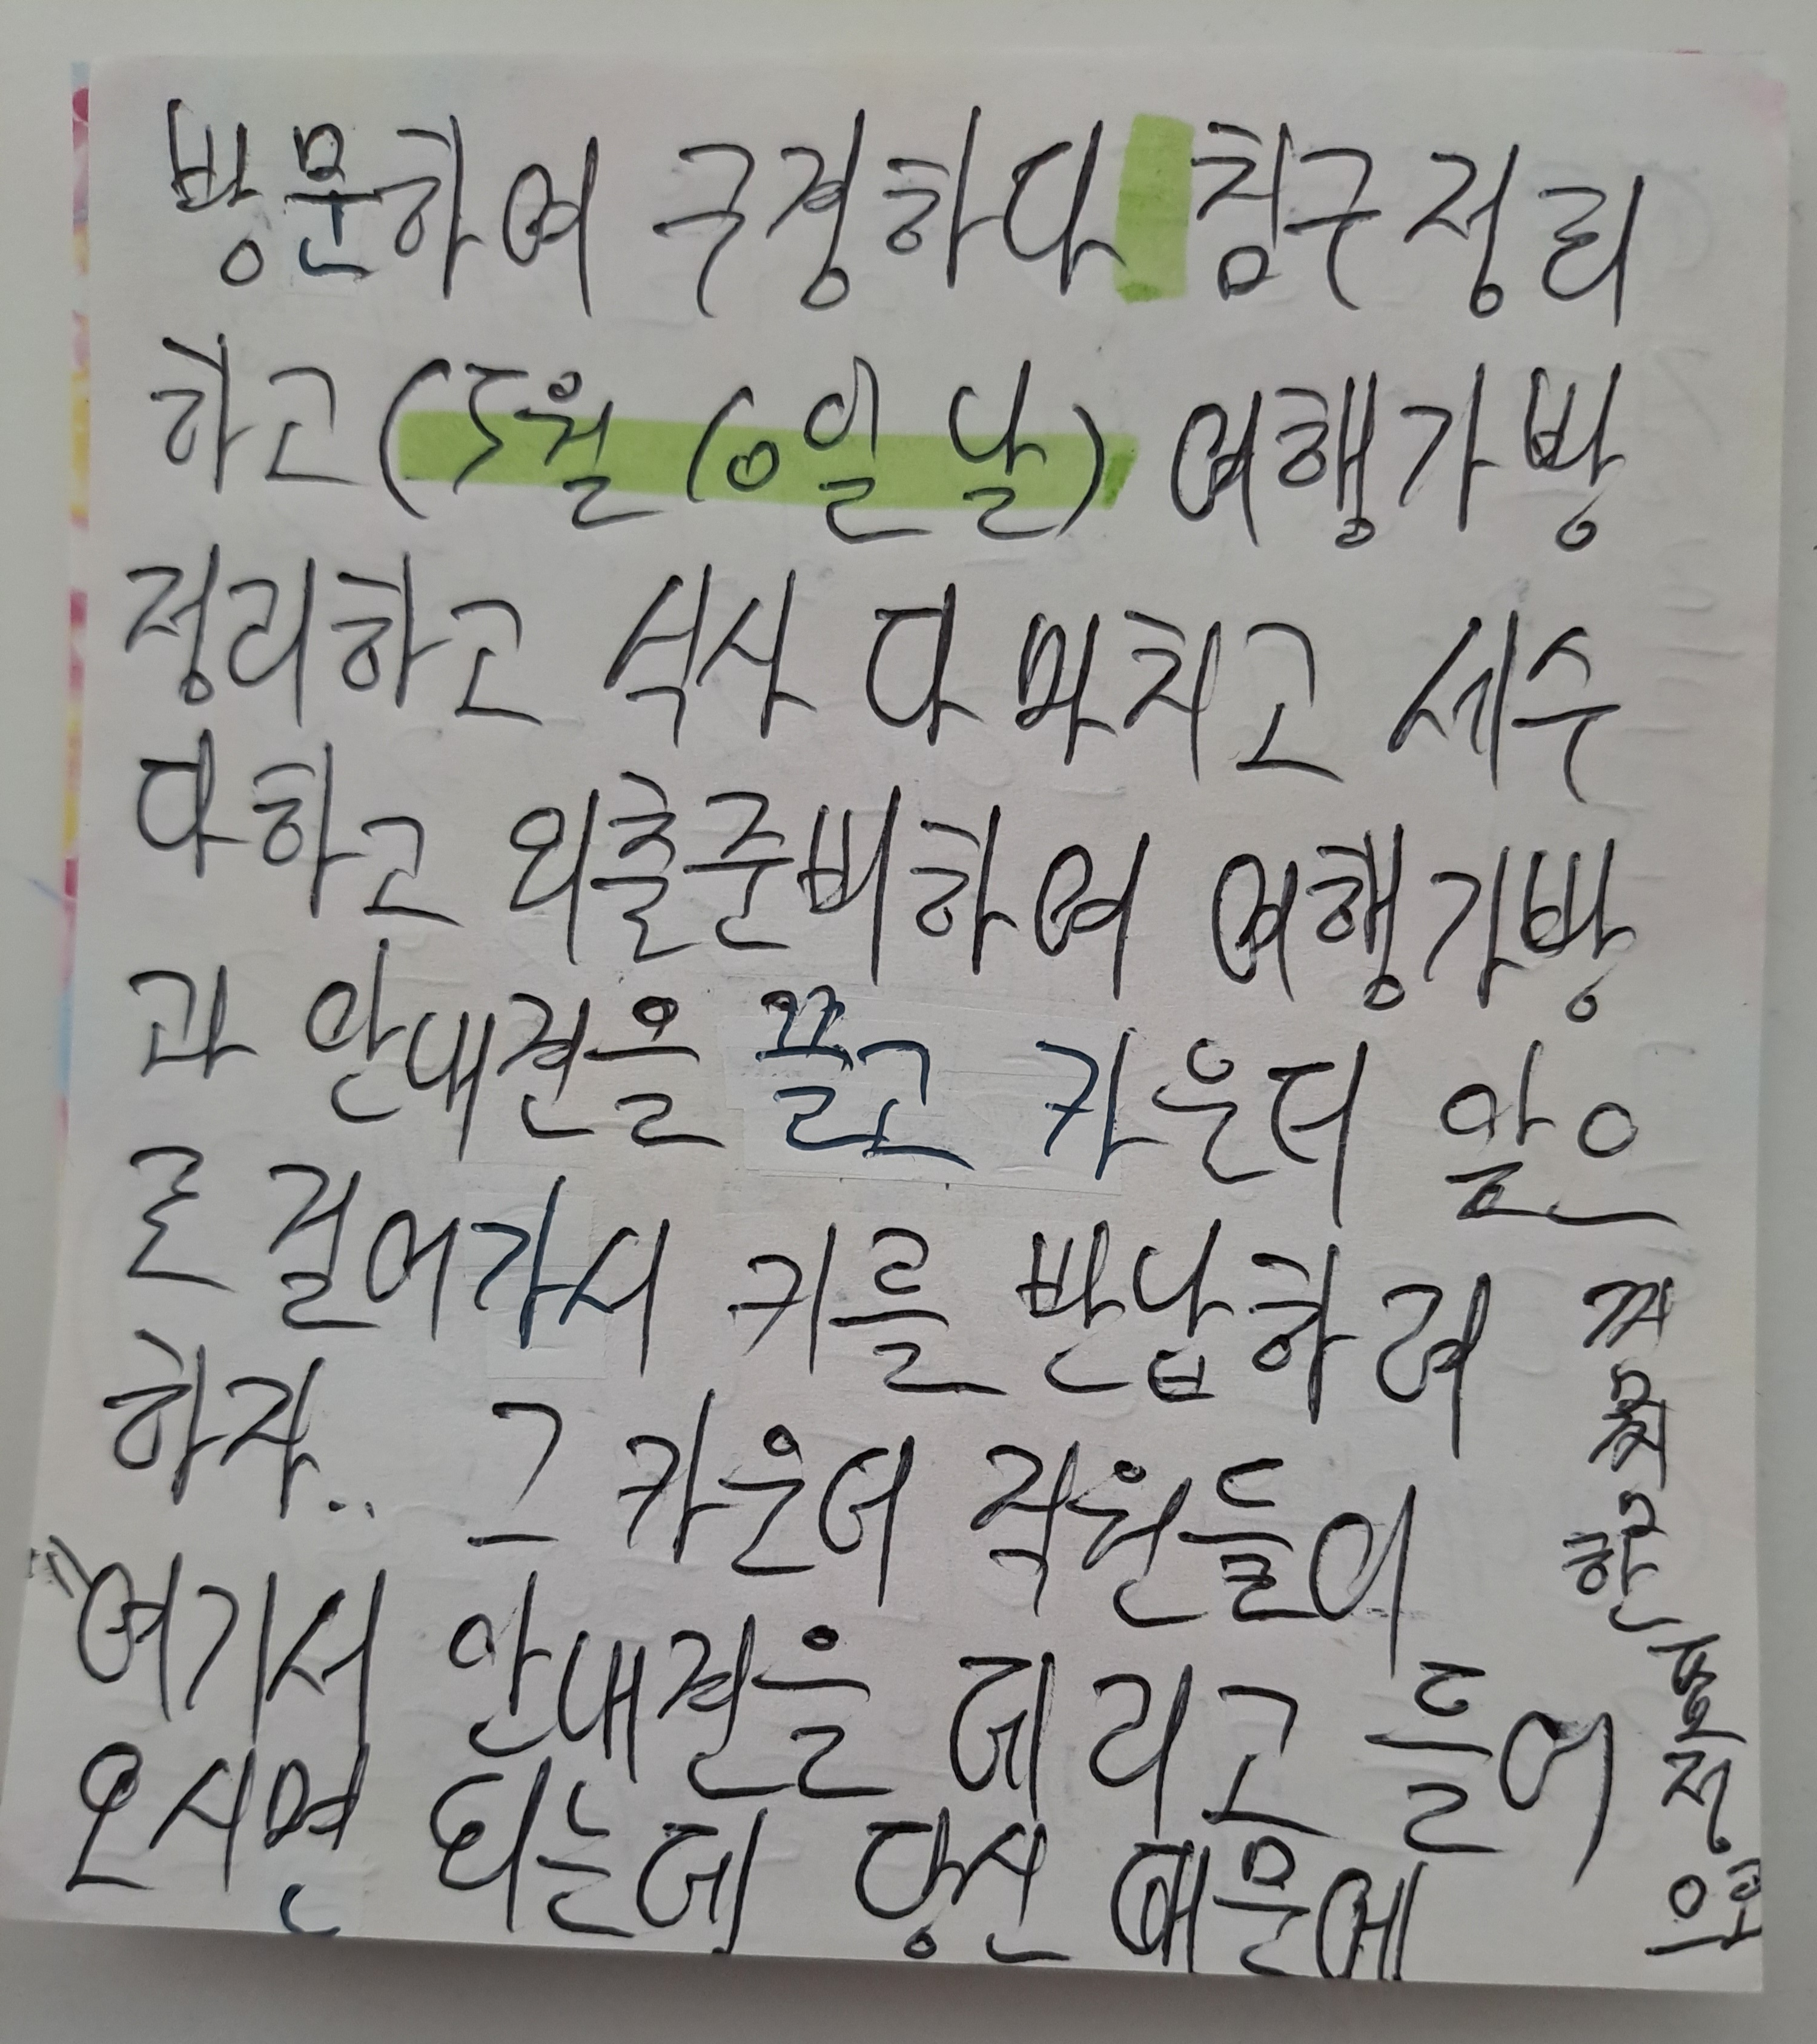 방문하여 구경하다 침구정리
하고 (5월 10일 날) 여행가방
정리하고 식사 다 마치고 세수
다하고 외출준비하여 여행가방
과 안내견을 끌고 카운터 앞으
로 걸어가서 키를 반납하려
하자.. 그 카운터 직원들이
꺼림칙한 표정으로
"여기서 안내견을 데리고 들어
오시면 되는데 당신 때문에